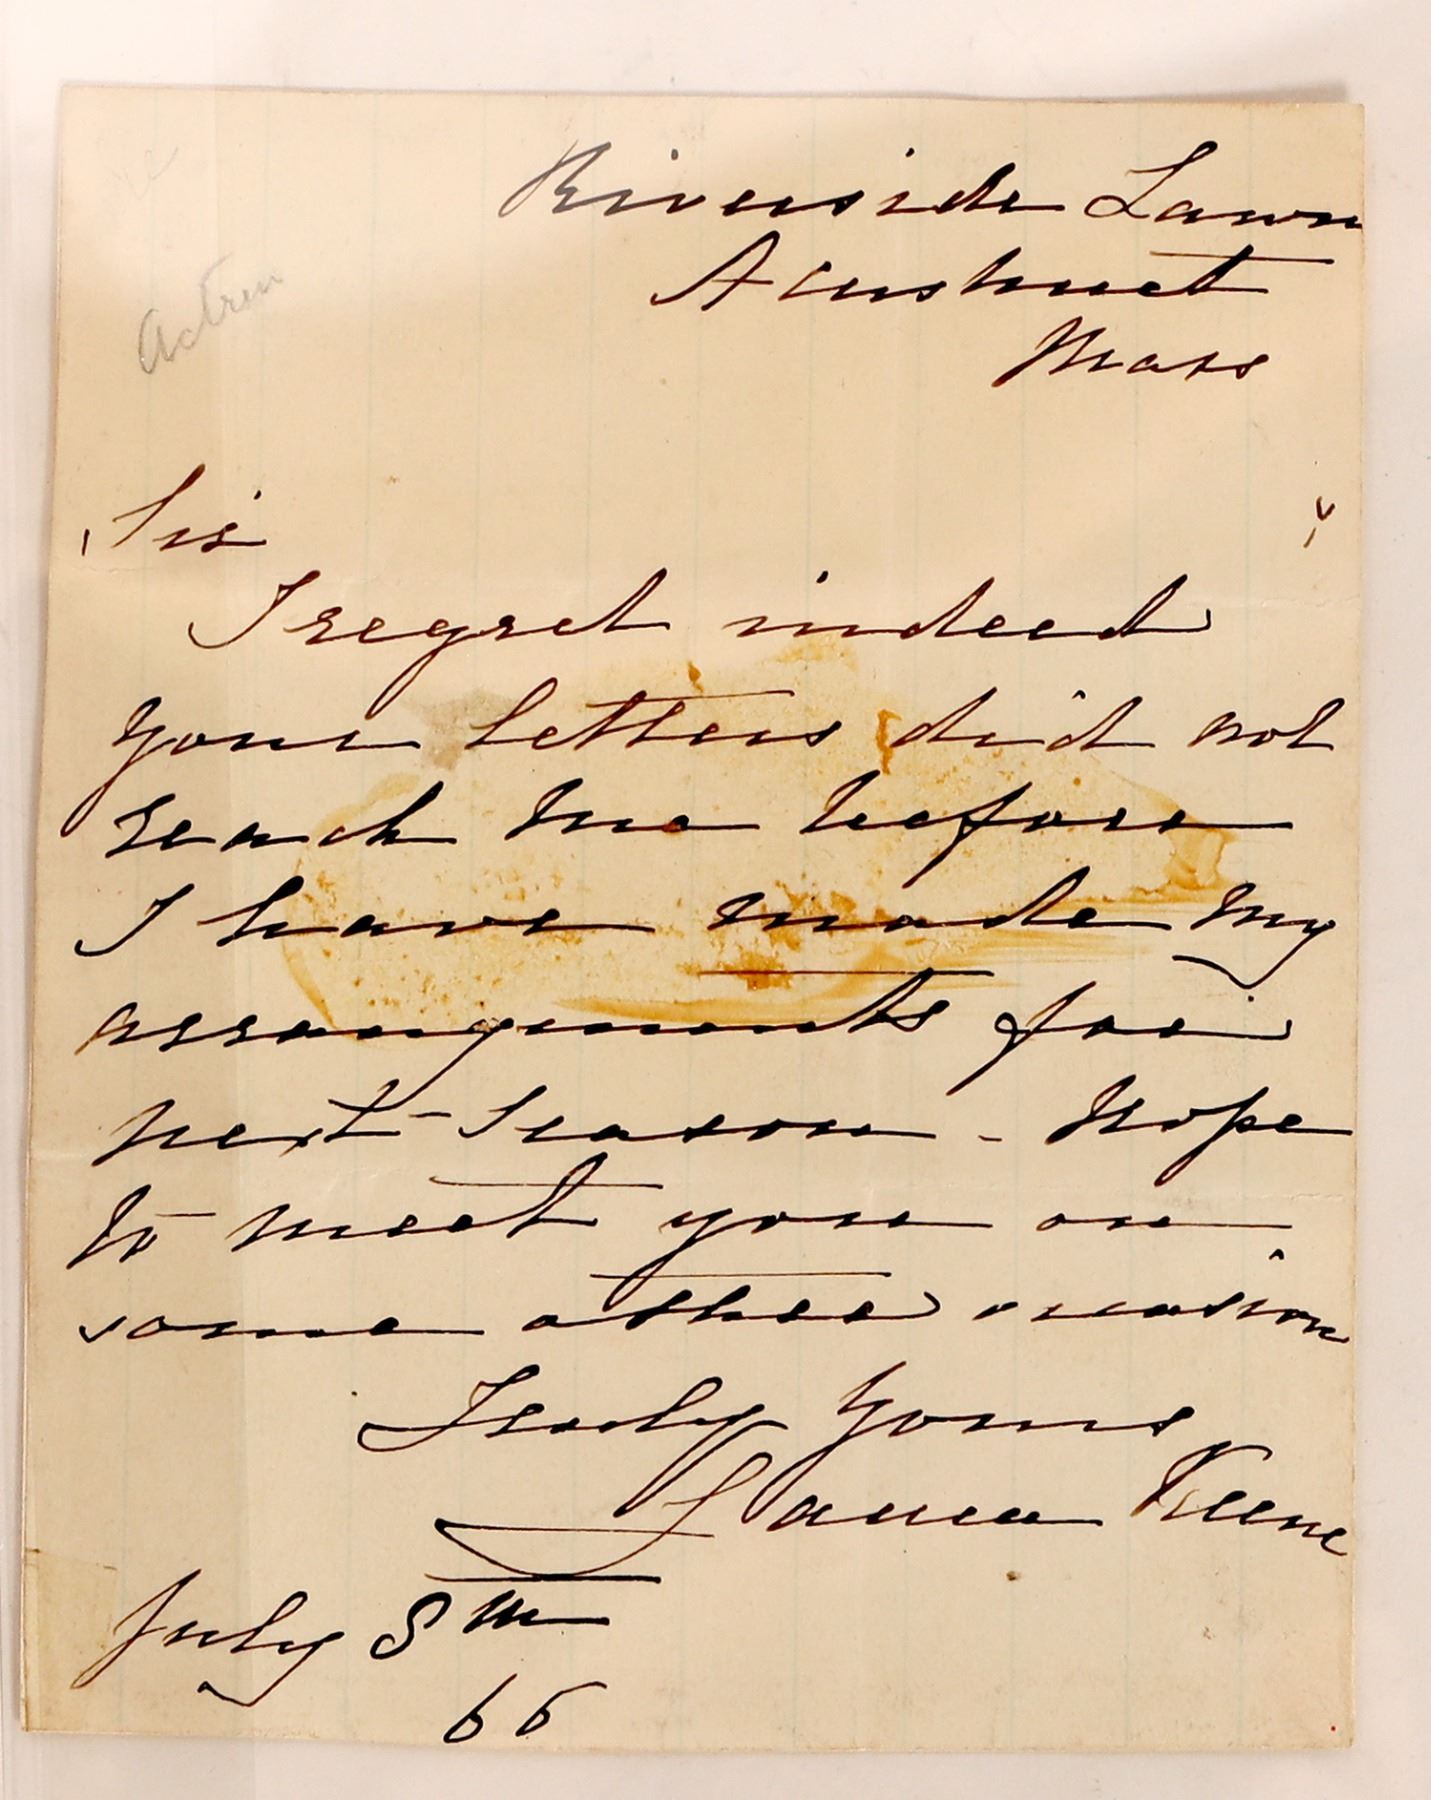 Riverside Lawn
Acushnet
Mass
Actress
Sir
I regret indeed
your letters did not
reach me before
I have made my
arrangements for
next season - hope
to meet you on
some other occasion
Truly yours
Laura Keene
July 8th
66